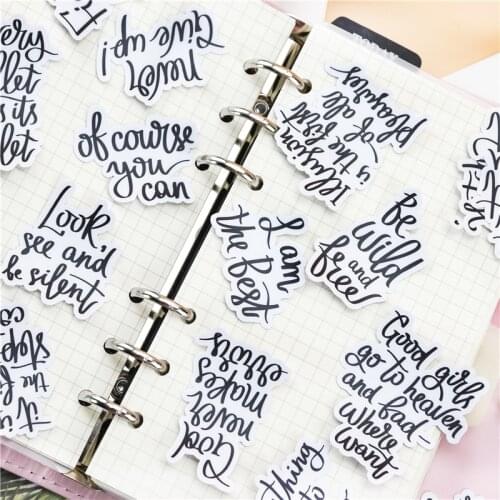 very
let
s its
let
never
Give up!
TODAY
of course
you
can
Illusion
is the first
of all
pleasures
Look,
see and
be silent
I am
the best
Be
wild
and
free
it is
the fi
step
co
God
never
makes
errors
Good girls
go to heaven
and bad—
where
want
thing
to